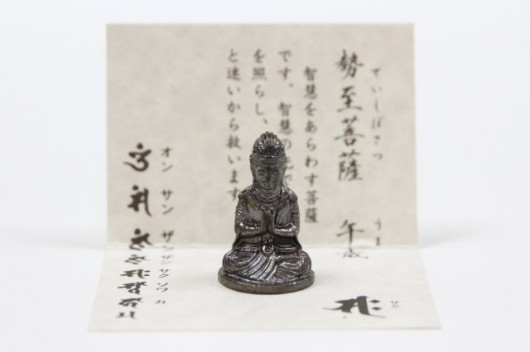 せいしぼさつ
勢至菩薩
うま
午歳
サク
智慧をあらわす菩薩
です。智慧の
を照らし、
と迷いから救います
オン サン ザンザンサク ソワカ